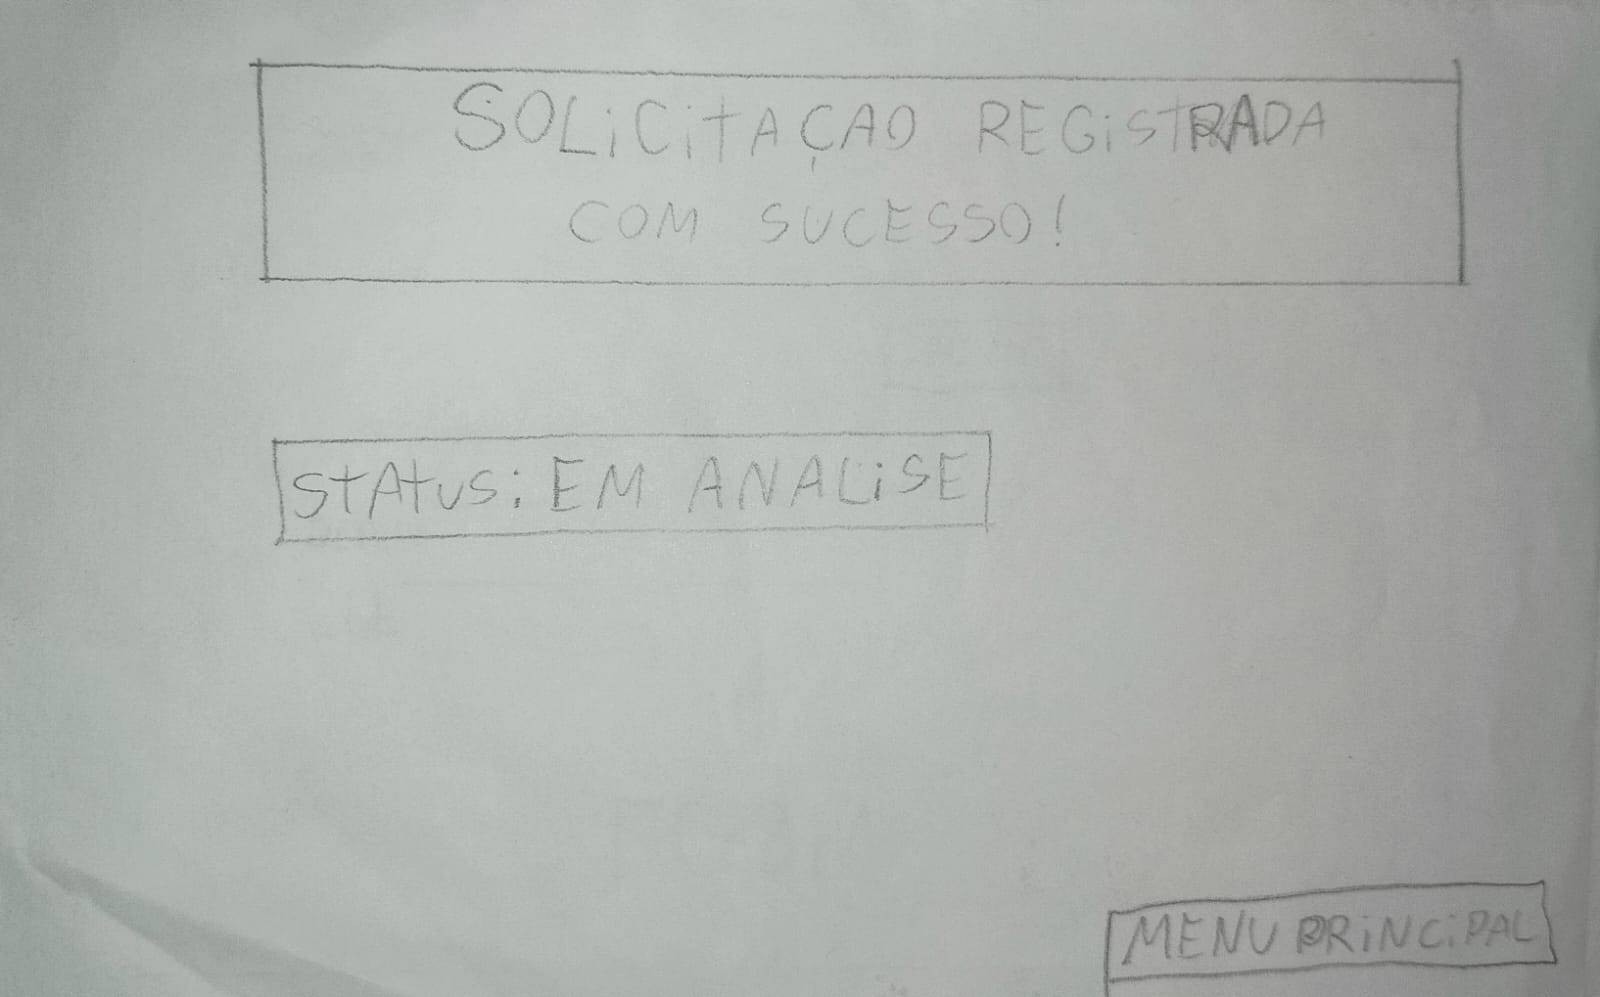 SOLiCiTAÇAO REGiSTRADA
COM SUCESSO!
STATUS: EM ANALiSE
MENU PRiNCiPAL